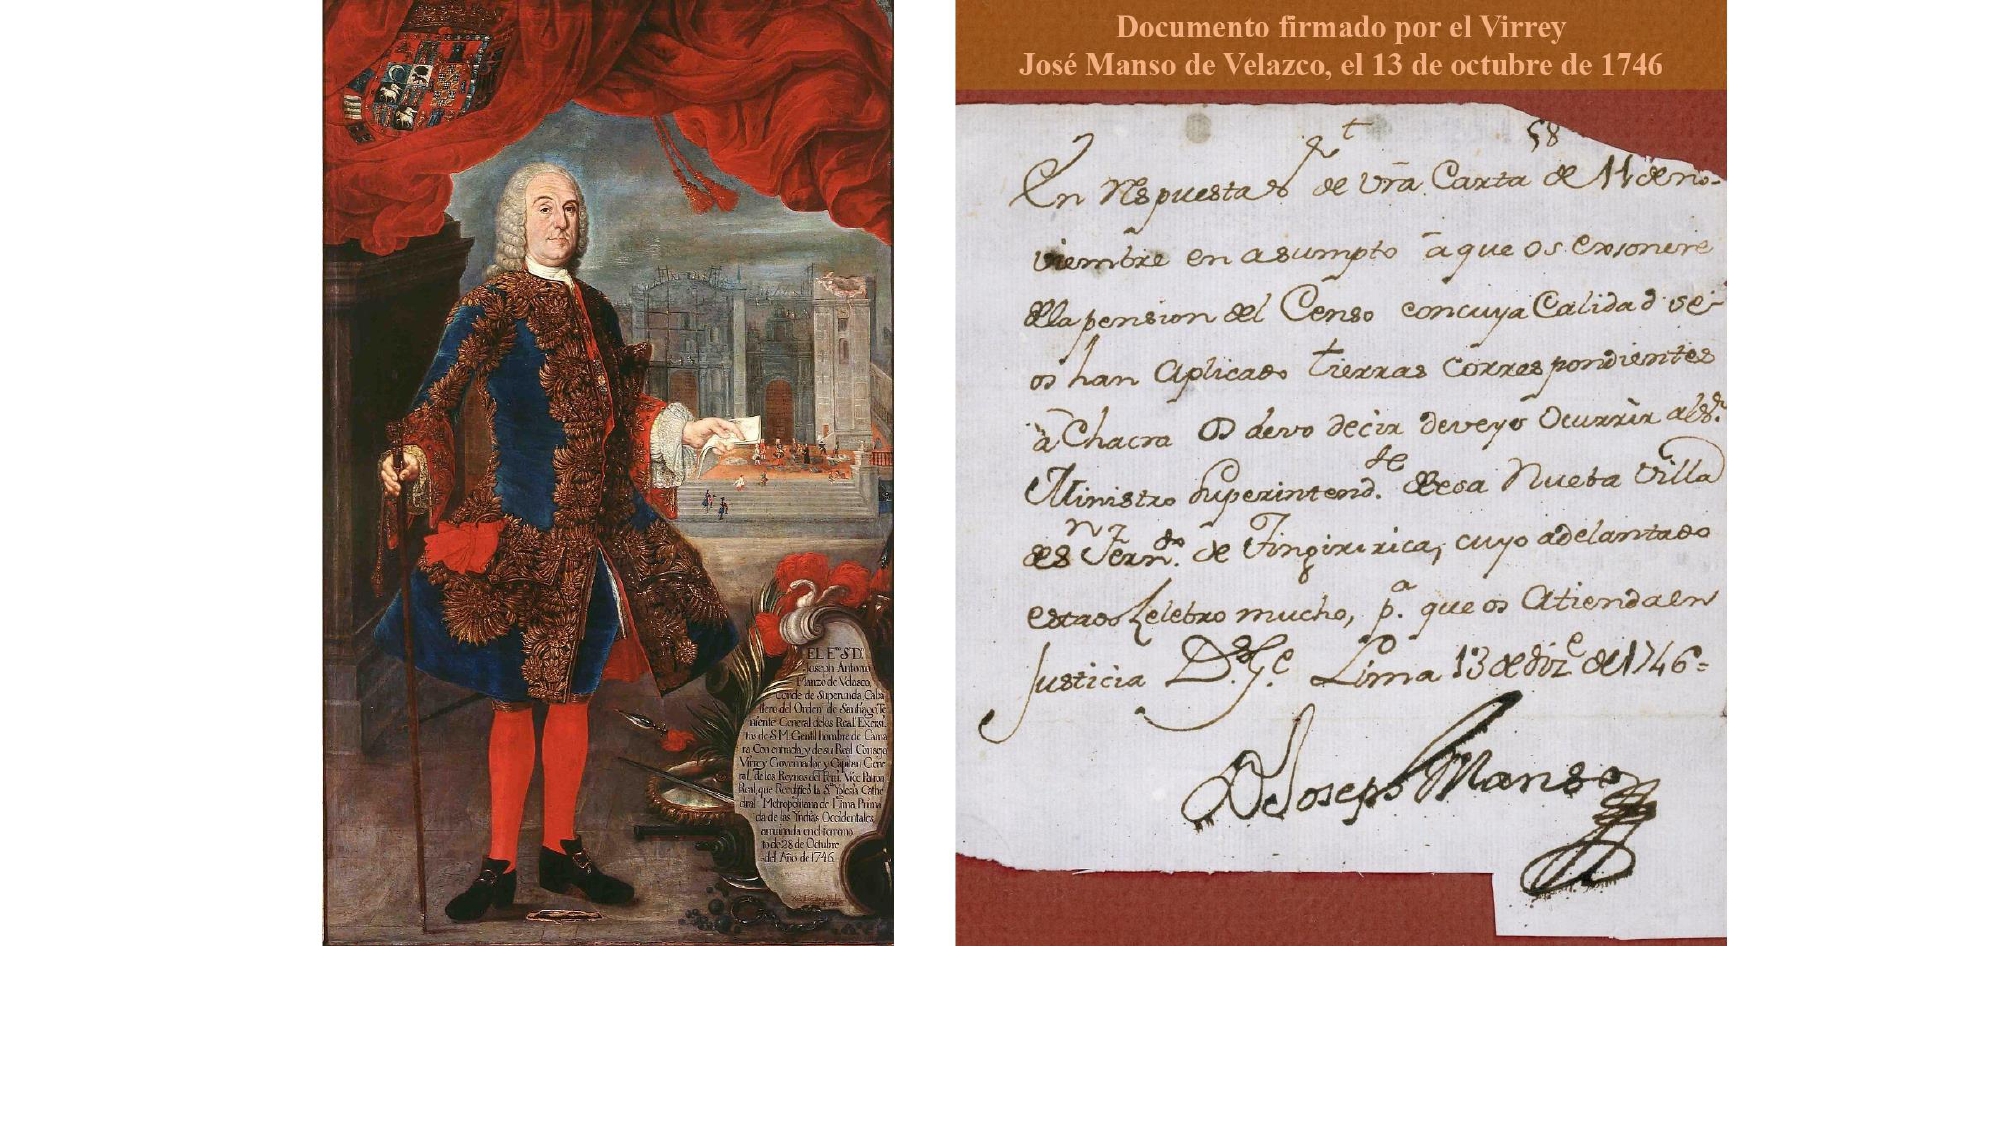 EL E.mo S.D.
Joseph Antonio
Manzo de Velasco,
Conde de Superunda, Caba
llero del Orden de Santiago, Te
niente General de los Real.s Exerci
tos de S.M. Gentil hombre de Cama
ra Con entrada, y de su Real Consejo
Virrey Governador y Capitan Gene
ral, de los Reynos del Perú, Vice Patron
Real, que Reedificó la S.ta Yglesia Cathe
dral Metropolitana de Lima Prima
da de las Yndias Occidentales,
arruinada en el terremo
to de 28 de Octubre
del Año de 1746.
Documento firmado por el Virrey
José Manso de Velazco, el 13 de octubre de 1746
58
En Respuesta de vra. Carta de 11 de no-
viembre en asumpto à que os exsonere
de la pension del Censo con cuya Calidad se
os han Aplicado tierras Correspondientes
à Chacra os devo decir deveys Ocurrir al Sr.
Ministro Superintend.te de esa Nueba Villa
de Sn Fern.do de Tingiririca, cuyo adelantado
estado Zelebro mucho, p.a que os Atienda en
Justicia D. G. e Lima 13 de diz.e de 1746=
D Joseph Manso